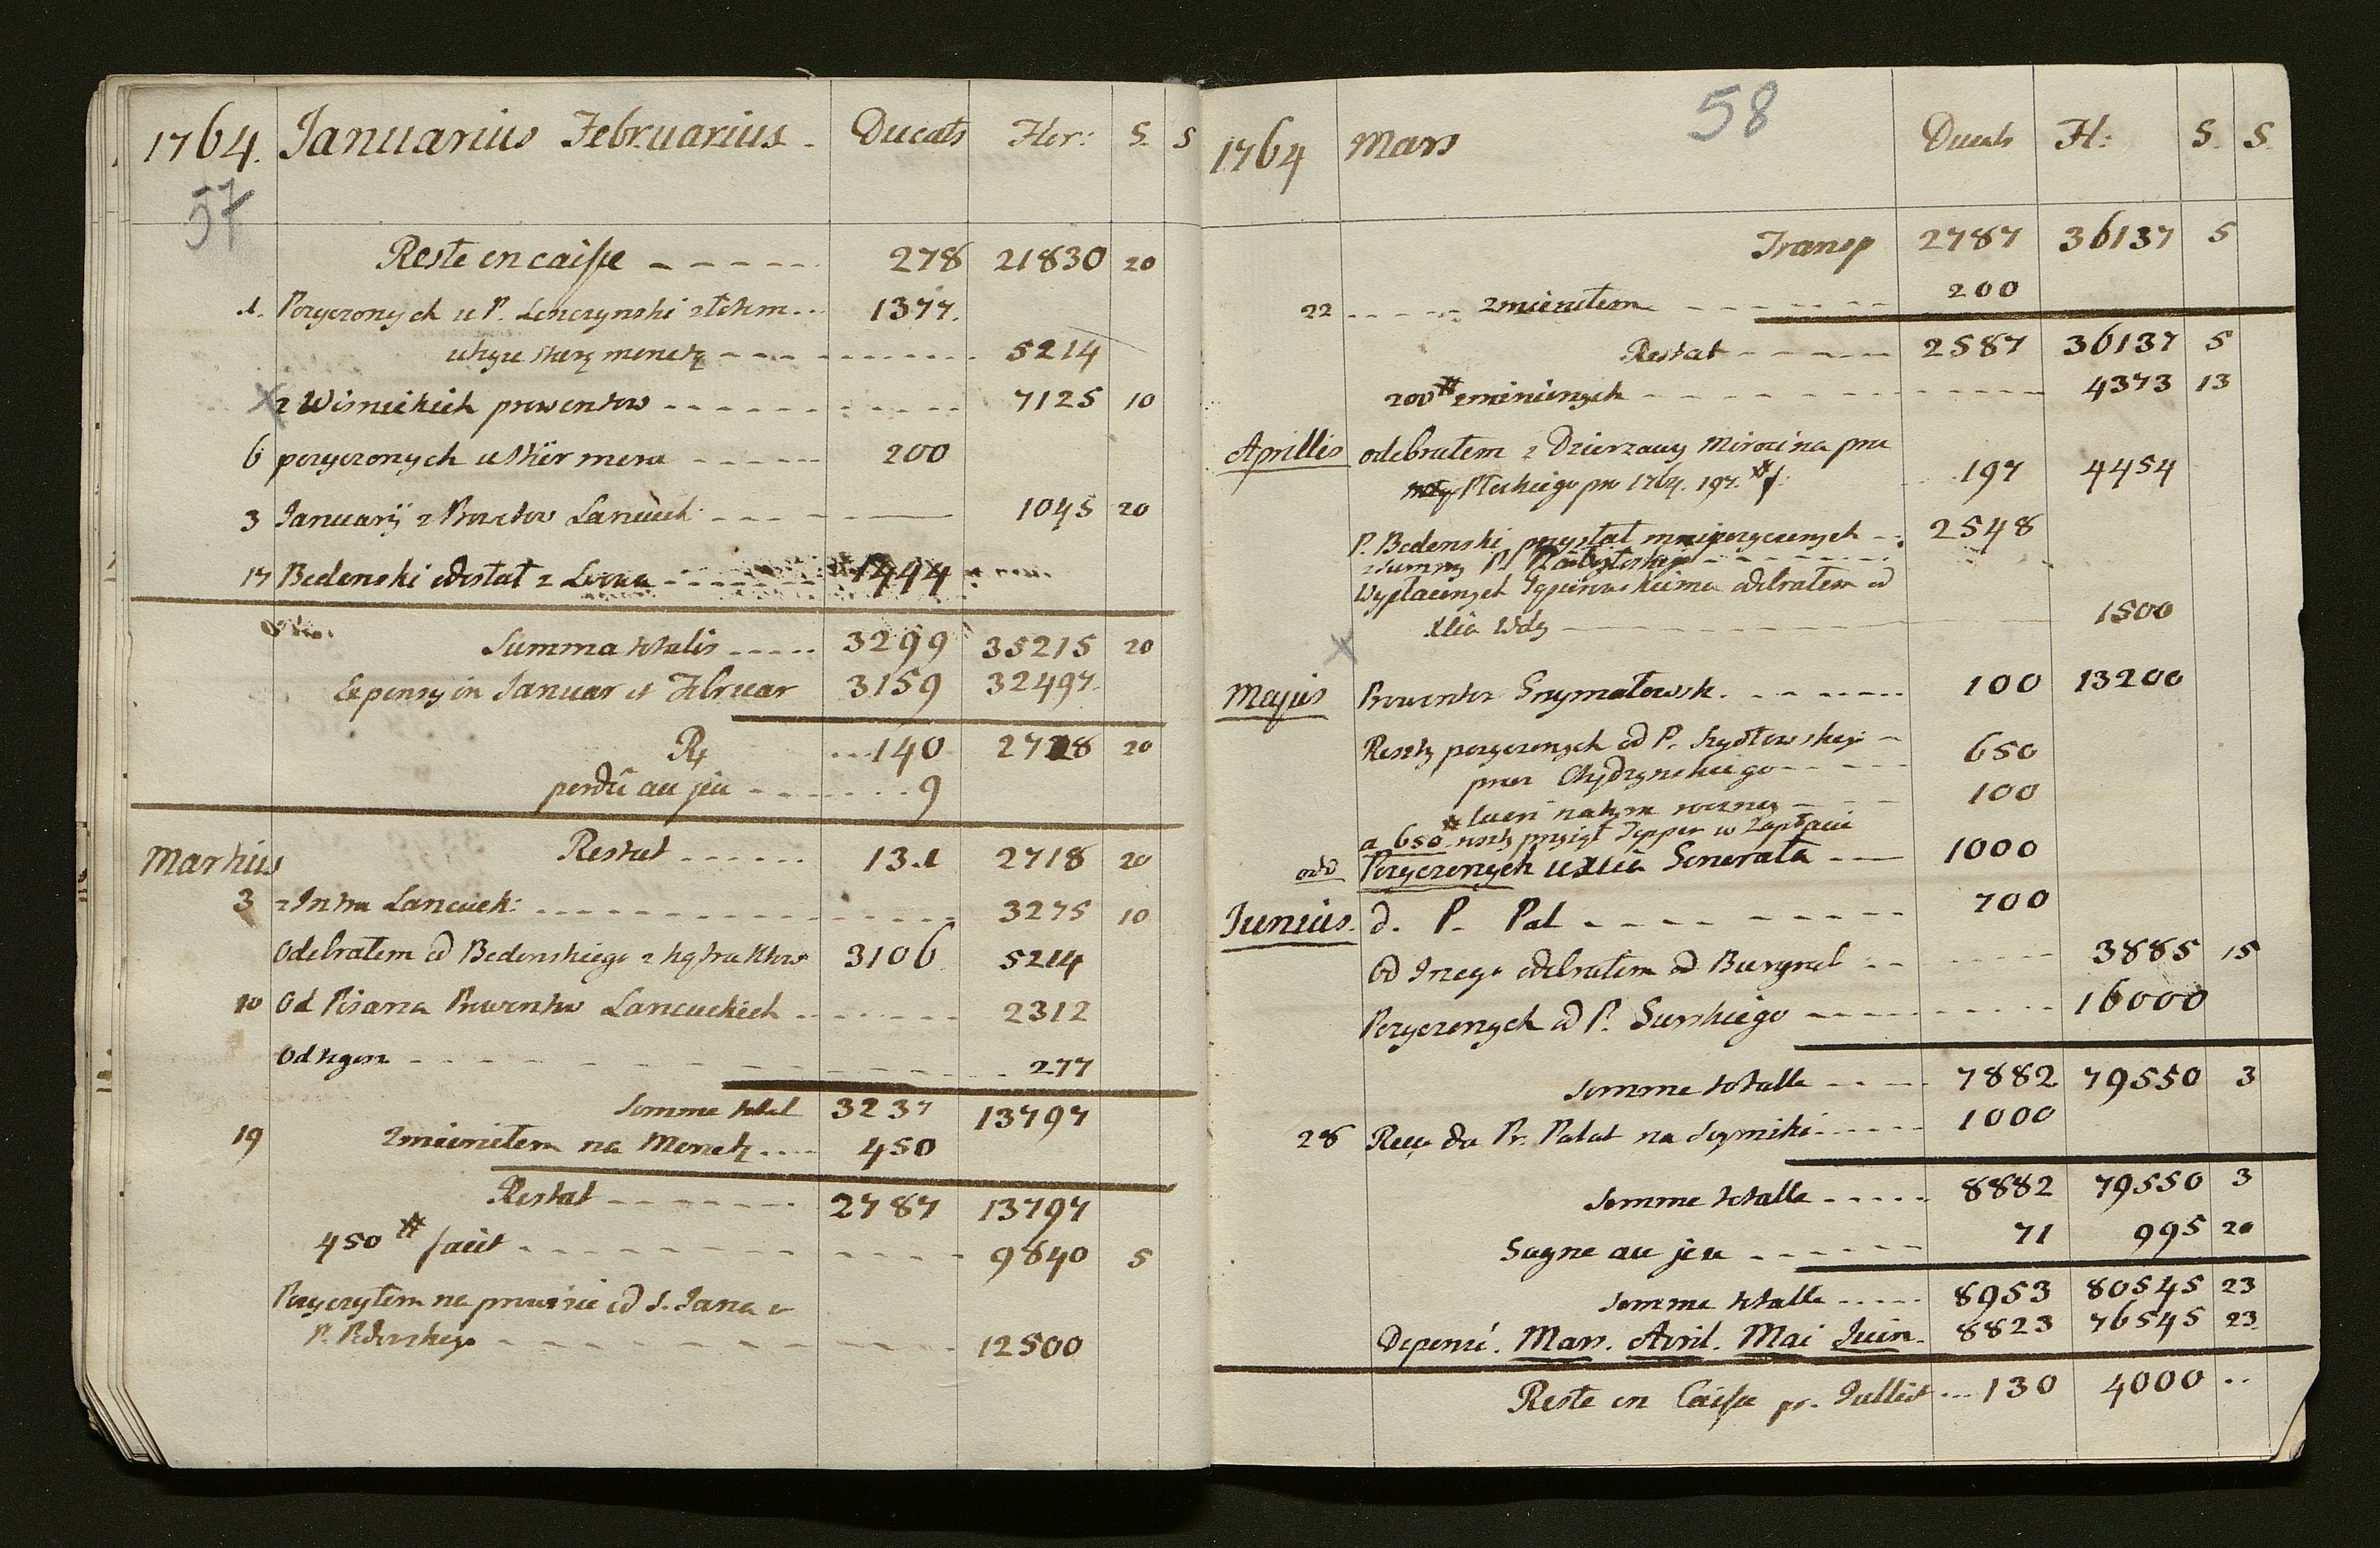 1764. Januarius Februarius. Ducats Flor: S. S
57
Reste en caisse 278 21830 20
1. Pozyczonych u P. 1377.
monetą 5214
z Wisnickich prowentow 7125 10
6 pozyczonych u 200
3 Januarÿ z Lancuck 1045 20
17 Bedenski odesłał z Lwowa 1444
Summa totalis 3299 35215 20
Expensy in Januar et Februar 3159 32497.
Rt 140 2718 20
perdû au jeu 9
Martius Restat 131 2718 20
3 z Lancuck: 3275 10
Odebrałem od Bedenskiego z 3106 5214
10 Od Pisarza Prowentow Lancuckich 2312
Od 277
Somme total 3237 13797
19 Zmieniłem na Monetę 450
Restat 2787 13797
450 # facit 9840 5
Pozyczyłem na prowizie od S. Jana u
P. 12500
58
1764 Mars Ducats Fl: S. S.
Transp 2787 36137 5
22 zmieniłem 200
Restat 2587 36137 5
200 # zmienionych 4373 13
Aprillis odebrałem z Dzierzawy Mirocina prze
pro 1764. 197. # f. 197 4454
P. Bedenski przysłał mni pozyczonych 2548
z summy P.
Wypłaconych odebrałem od
Xcia Wdy 1500
Majus Prowentow Grzymałowsk. 100 13200
Reszty pozyczonych od P. Szydłowskiego 650
przez
100
a 650 # reszty przyiął Tepper w Zapłacie
Pozyczonych u Xcia Generała 1000
Junius. d. P. Pal 700
Od odebrałem od Burgrab 3885 15
Pozyczonych od P. Surskiego 16000
Somme totalle 7882 79550 3
28 Reçu du Pr. Palat na Seymiki 1000
Somme totalle 8882 79550 3
Gagne au jeu 71 995 20
Somme totalle 8953 80545 23
Depensé. Mars. Avril. Mai Juin. 8823 76545 23
Reste en Caisse pr. Julliet 130 4000 ..